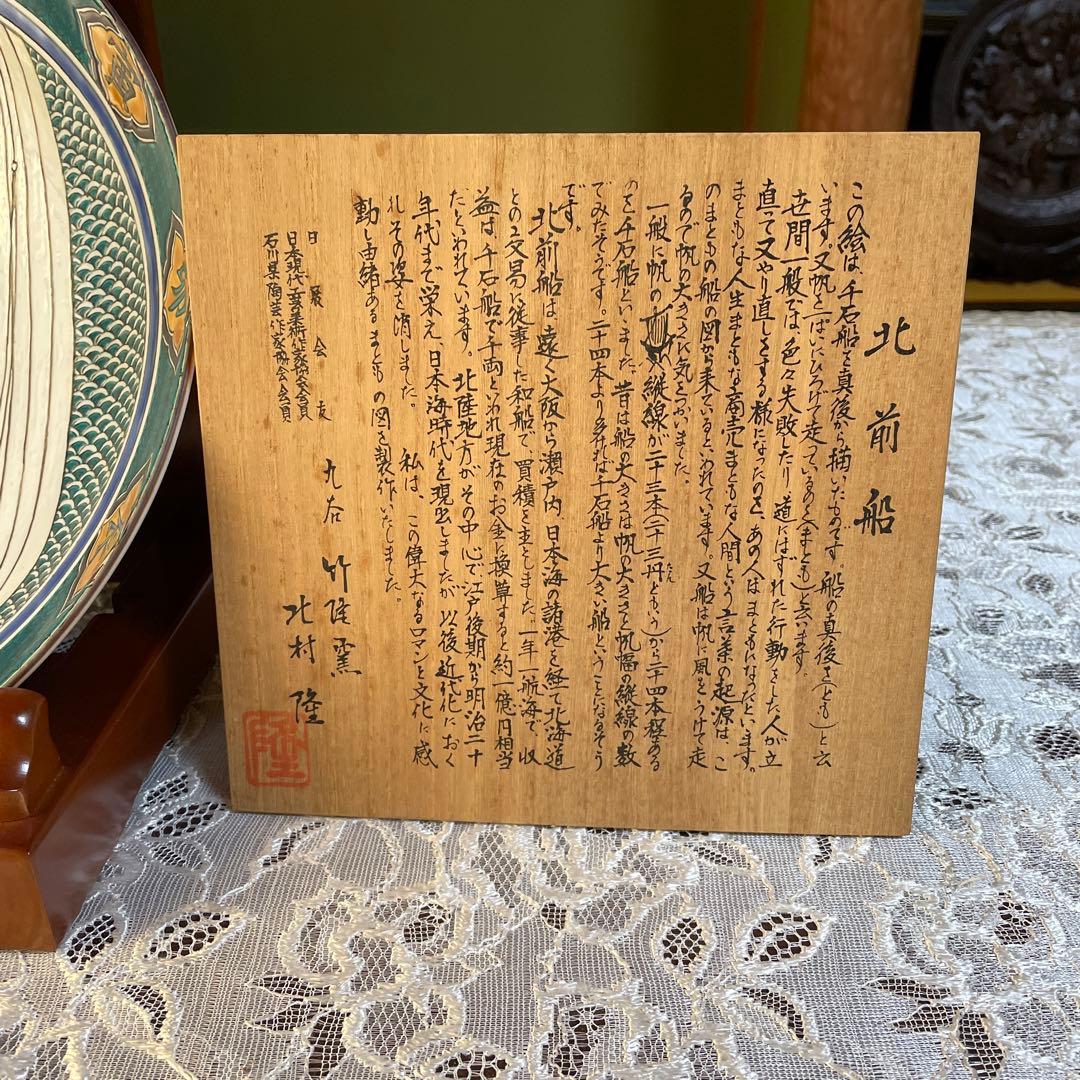 北前船
この絵は、千石船を真後から描いたものです。船の真後を(とも)と云
います。又帆を一ぱいにひろげて走っているのを(まとも)と云います。
世間一般では、色々失敗したり道にはずれた行動をした人が立
直って又やり直しをする様になったのを、あの人はまともになったといます。
まともな人生まともな商売まともな人間という言葉の起源は、こ
のまともの船の図から来ているといわれています。又船は帆に風をうけて走
るので帆の大きさに気をつかいました。
一般に帆の縦線が二十三本(二十三丹ともいう)から二十四本程ある
のを千石船といました。昔は船の大きさは帆の大きさと帆幅の縦線の数
でみたそうです。二十四本より多ければ千石船より大きい船ということになるそう
です。
北前船は、遠く大阪から瀬戸内、日本海の諸港を経て北海道
との交易に従事した和船で、買積を主としました。一年一航海で、収
益は千石船で千両といわれ現在のお金に換算すると約一億円相当
だといわれています。北陸地方がその中心で江戸後期から明治二十
年代まで栄え、日本海時代を現出しましたが以後近代化におく
れその姿を消しました。私は、この偉大なるロマンと文化に感
動し由緒あるまともの図を製作いたしました。
日展会友
日本現代工芸美術作家協会会員
石川県陶芸作家協会会員
九谷 竹隆窯
北村隆
隆